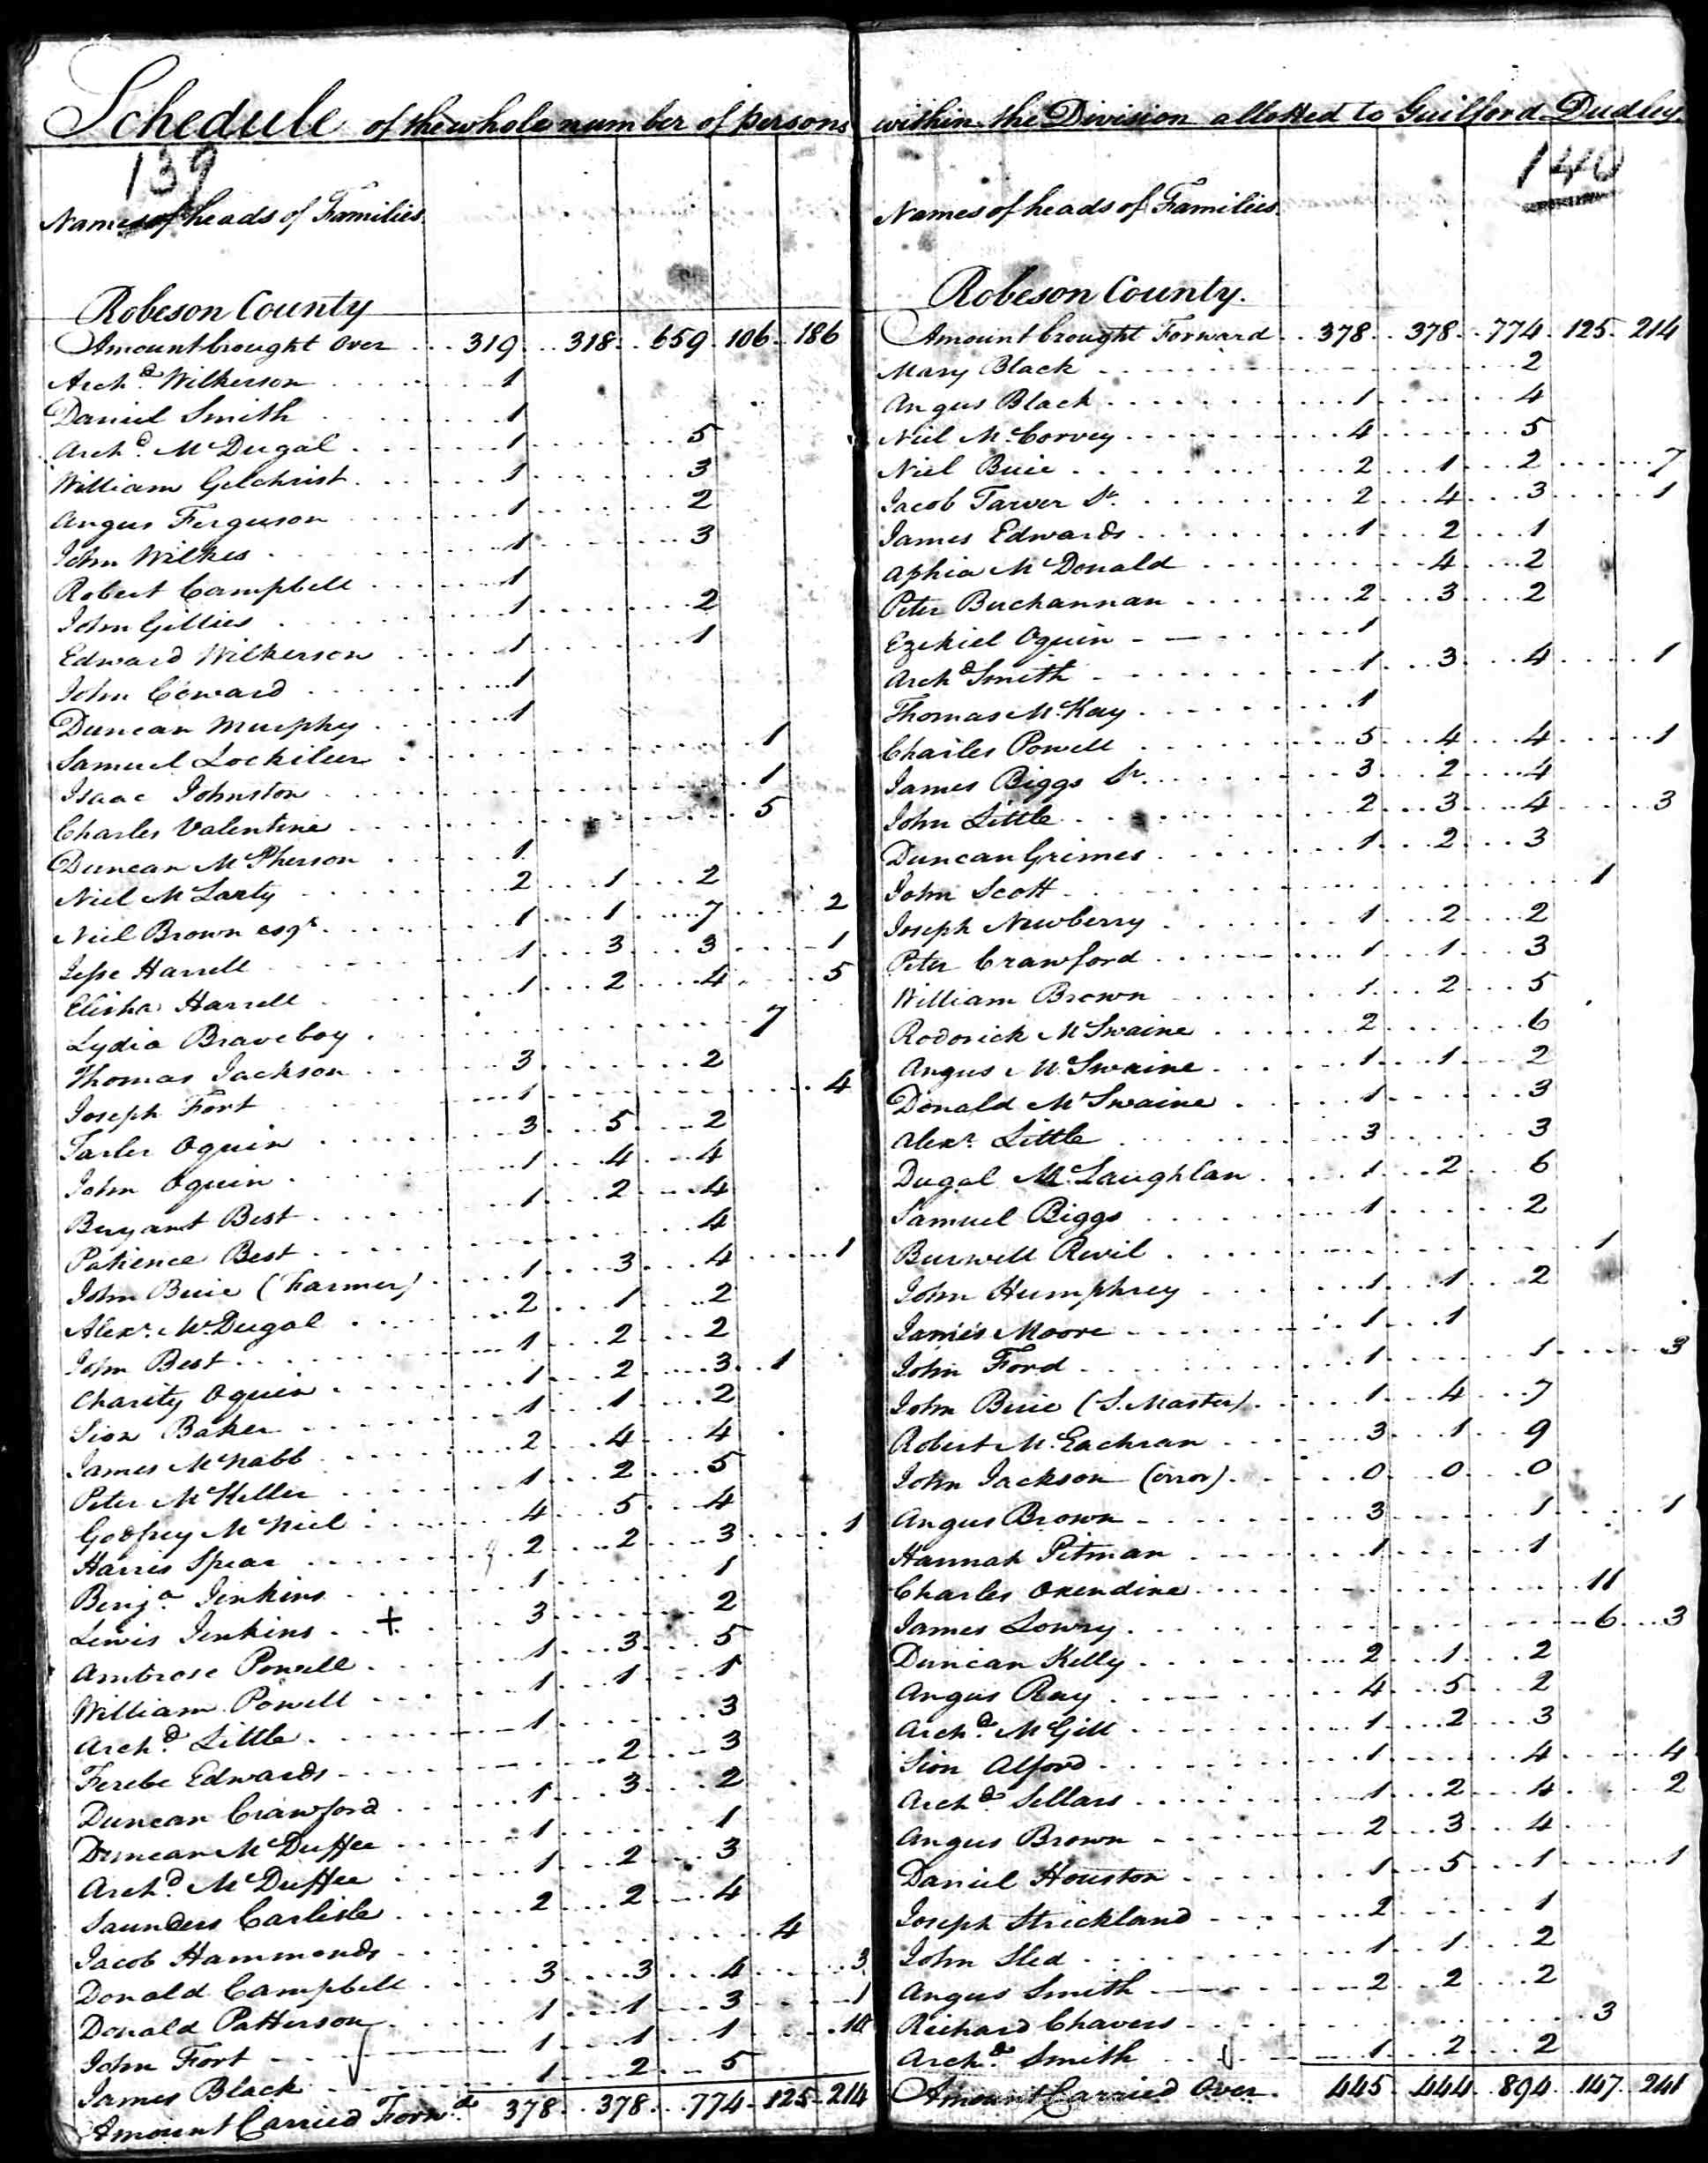 Schedule of the whole number of persons within the Division allotted to Guilford Dudley
139
Names of heads of Families
Robeson County
Amount brought over 319 318 659 106 186
Archd. Wilkerson 1
Daniel Smith 1
Archd. McDugal 1 5
William Gilchrist 1 3
Angus Ferguson 1 2
John Wilkes 1 3
Robert Campbell 1
John Gillies 1 2
Edward Wilkerson 1 1
John Coward 1
Duncan Murphy 1
Samuel Lockileer 1
Isaac Johnston 1
Charles Valentine 5
Duncan McPherson 1
Niel McLarty 2 1 2
Niel Brown esqr. 1 1 7 2
Jesse Harrell 1 3 3 1
Elisha Harrell 1 2 4 5
Lydia Braveboy 7
Thomas Jackson 3 2
Joseph Fort 1 4
Tarler Oquin 3 5 2
John Oquin 1 4 4
Bryant Best 1 2 4
Patience Best 4
John Buie (Farmer) 1 3 4 1
Alexr. McDugal 2 1 2
John Best 1 2 2
Charity Oquin 1 2 3 1
Sion Baker 1 1 2
James McNabb 2 4 4
Peter McKeller 1 2 5
Godfrey McNiel 4 5 4
Harris Spear 2 2 3 1
Benja. Jenkins 1 1
Lewis Jenkins + 3 2
Ambrose Powell 1 3 5
William Powell 1 1 1
Archd. Little 1 3
Ferebe Edwards 2 3
Duncan Crawford 1 3 2
Duncan McDuffee 1 1
Archd. McDuffee 1 2 3
Saunders Carlisle 2 2 4
Jacob Hammonds 4
Donald Campbell 3 3 4 3
Donald Patterson 1 1 3 1
John Fort 1 1 1 10
James Black 1 2 5
Amount Carried Forwd. 378 378 774 125 214
140
Names of heads of Families
Robeson County.
Amount brought Forward 378 378 774 125 214
Mary Black 2
Angus Black 1 4
Niel McCorvey 4 5
Niel Buie 2 1 2 7
Jacob Tarver Sr. 2 4 3 1
James Edwards 1 2 1
Aphia McDonald 4 2
Peter Buchannan 2 3 2
Ezekiel Oquin 1
Archd. Smith 1 3 4 1
Thomas McKay 1
Charles Powell 5 4 4 1
James Biggs Sr. 3 2 4
John Little 2 3 4 3
Duncan Grimes 1 2 3
John Scott 1
Joseph Newberry 1 2 2
Peter Crawford 1 1 3
William Brown 1 2 5
Rodorick McSwaine 2 6
Angus McSwaine 1 1 2
Donald McSwaine 1 3
Alexr. Little 3 3
Dugal McLaughlan 1 2 6
Samuel Biggs 1 2
Burwell Revil 1
John Humphrey 1 1 2
James Moore 1 1
John Ford 1 1 3
John Buie (S. Master) 1 4 7
Robert McEachran 3 1 9
John Jackson (error) 0 0 0
Angus Brown 3 1 1
Hannah Pitman 1 1
Charles Oxendine 11
James Lowry 6 3
Duncan Kelly 2 1 2
Angus Ray 4 5 2
Archd. McGill 1 2 3
Sion Alford 1 4 4
Archd. Sellars 1 2 4 2
Angus Brown 2 3 4
Daniel Houston 1 5 1 1
Joseph Strickland 2 1
John Sled 1 1 2
Angus Smith 2 2 2
Richard Chavers 3
Archd. Smith 1 2 2
Amount Carried Over 445 444 894 147 241